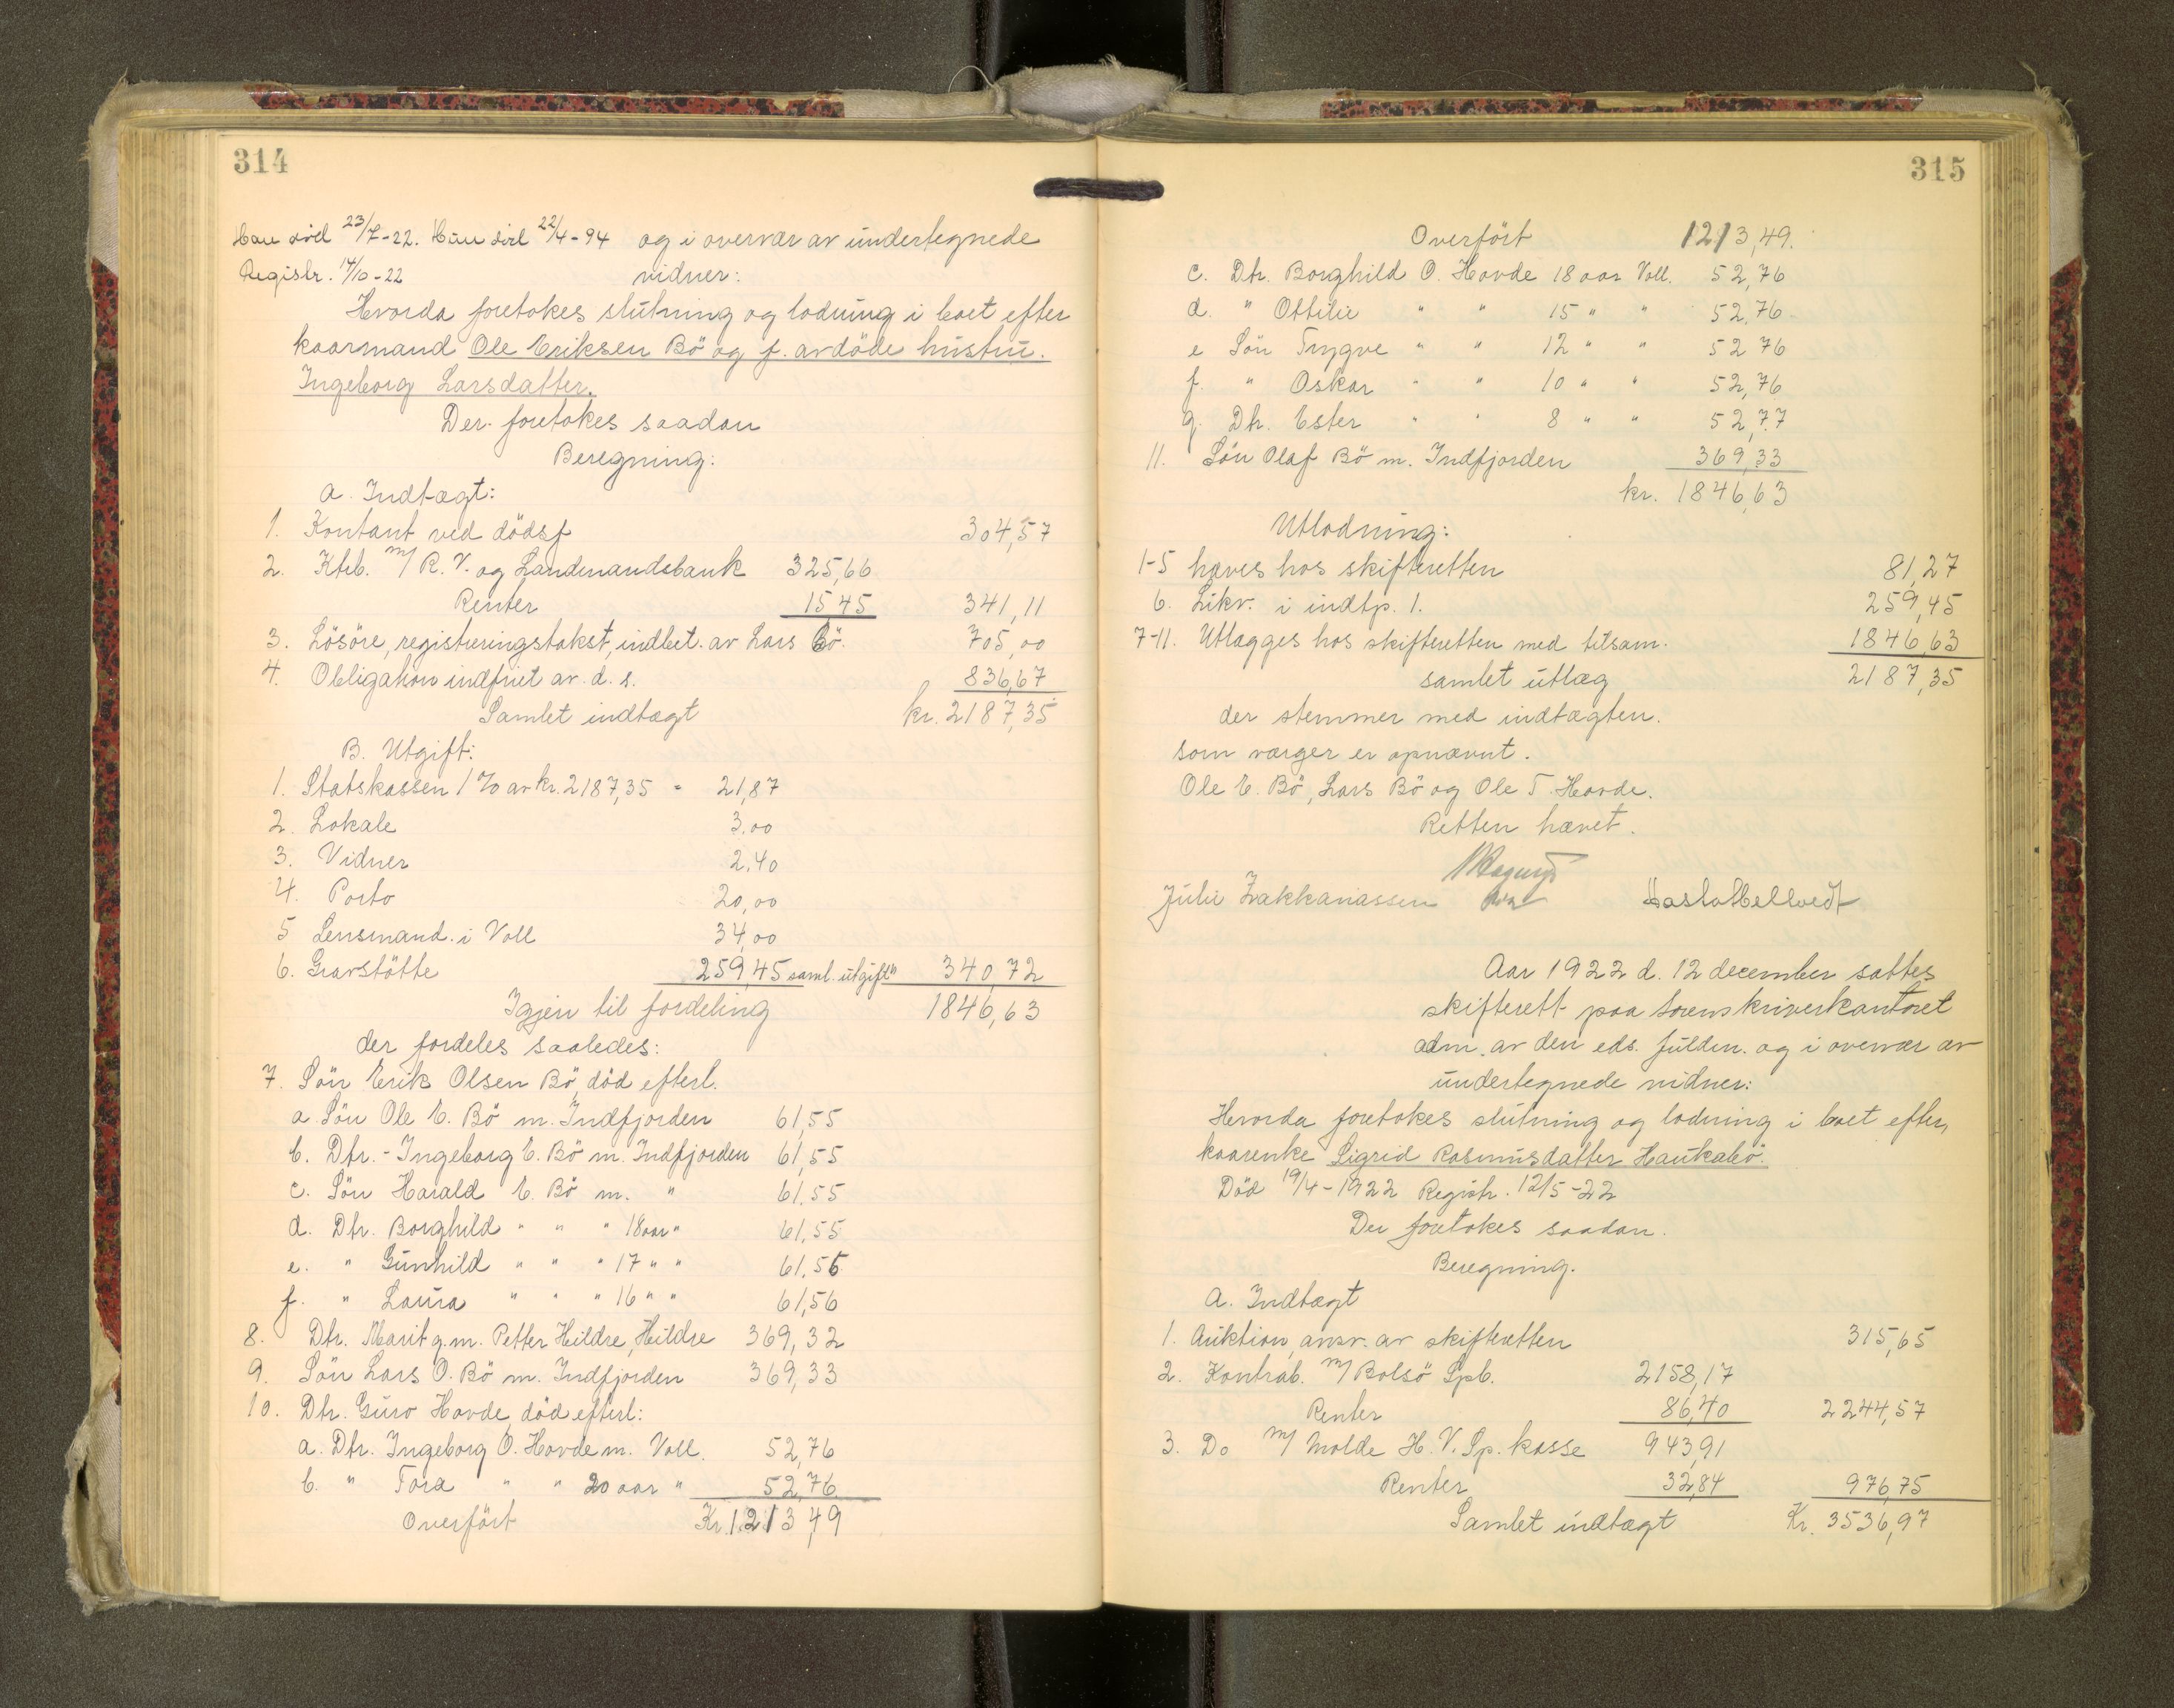 314
Han död 23/7-22. Hun död 22/4-94 og i overvær av undertegnede
Registr. 14/10-22 vidner:
Hvorda foretokes slutning og lodning i boet efter
kaarmand Ole Eriksen Bö og f. avdöde hustru.
Ingeborg Larsdatter.
Der foretokes saadan
Beregning:
A. Indtægt:
1. Kontant ved dödsf 304,57
2. Ktrb. m/ R. V. og Landmandsbank 325,66
Renter 15 45 341,11
3. Lösöre, registreringstakst, indbet. av Lars Bö. 705,00
4. Obligation indfriet av d. s. 836,67
Samlet indtægt kr. 2187,35
B. Utgift:
1. Statskassen 1 % av kr. 2187,35 = 21,87
2. Lokale 3.00
3. Vidner 2.40
4. Porto 20,00
5 Lensmand. i Voll 34,00
6. Gravstötte 259,45 saml. utgift " 340,72
Igjen til fordeling 1846,63
der fordeles saaledes:
7. Sön Erik Olsen Bö, död efterl.
a. Sön Ole E. Bö m. Indfjorden 61,55
b. Dtr. - Ingeborg E. Bö m. Indfjorden 61,55
c. Sön Harald E. Bö m. " 61,55
d. Dtr. Borghild " " " 18 aar " 61,55
e. " Gunhild " " " 17 " " 61.56
f. " Laura " " " 16 " " 61,56
8. Dtr. Marit g. m. Petter Hildre, Hildre 369,32
9. Sön Lars O. Bö m. Indfjorden 369,33
10. Dtr. Guro Hovde, död efterl:
a. Dtr. Ingeborg O. Hovde m. Voll. 52,76
b. " Tora " " 20 aar " 52,76
Overfört Kr. 1213,49
315
Overfört 1213,49.
c. Dtr. Borghild O. Hovde 18 aar Voll. 52,76
d. " Ottilie " " 15 " " 52,76
e Sön Trygve " " 12 " " 52 76
f. " Oskar " " 10 " " 52,76
g. Dtr. Ester " " 8 " " 52,77
11. Sön Olaf Bö m. Indfjorden 369,33
kr. 1846,63
Utlodning:
1-5 hæves hos skifteretten 81,27
6. Likv. i indtp. 1. 259,45
7-11. Utlægges hos skifteretten med tilsam. 1846,63
samlet utlæg 2187,35
der stemmer med indtægten.
som værger er opnævnt.
Ole E. Bö, Lars Bö og Ole T. Hovde.
Retten hævet.
Julie Zakkariassen
Aar 1922 d. 12 december sattes
skifterett paa Sorenskriverkantoret
adm. av den eds. fuldm. og i overvær av
undertegnede vidner:
Hvorda foretokes slutning og lodning i boet efter,
kaarenke Sigrid Rasmusdatter Haukabö.
Död 19/4-1922 Registr. 12/5-22
Der foretokes saadan.
Beregning.
A. Indtægt
1. Auktion, ansv. av skifteretten 315,65
2. Kontrab. m/ Bolsö Spb. 2158,17
Renter 86,40 2244,57
3. Do m/ Molde H. V. Sp. kasse 943,91
Renter 32,84 976,75
Samlet indtægt Kr. 3536,97